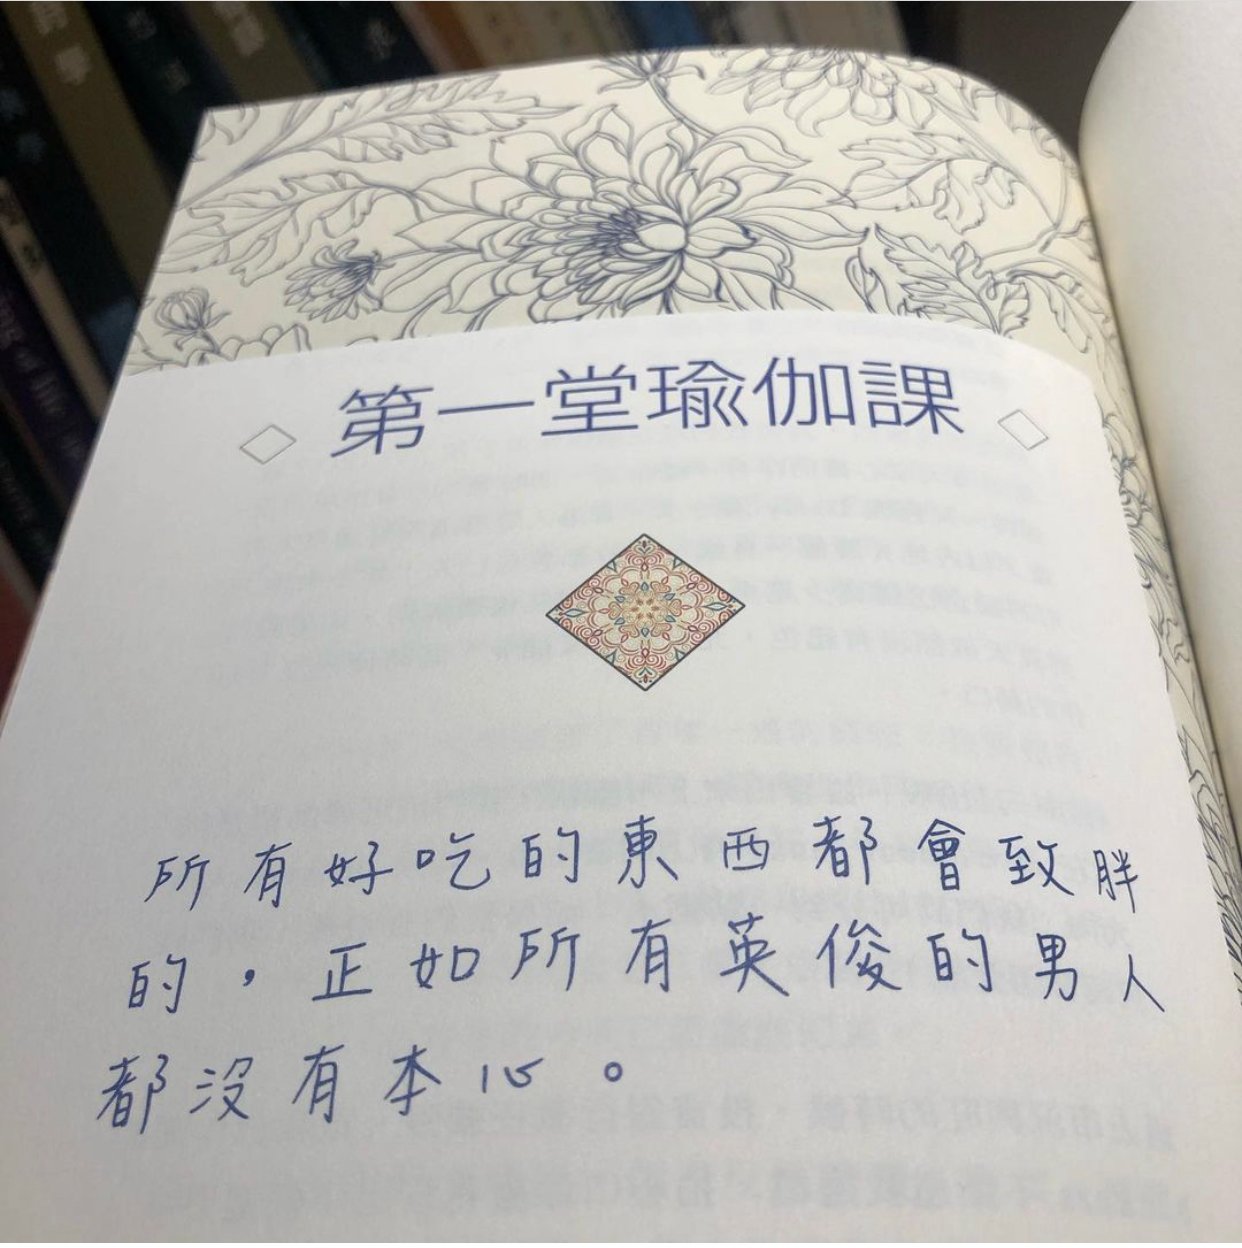 第一堂瑜伽課
所有好吃的東西都會致胖
的，正如所有英俊的男人
都沒有本心。